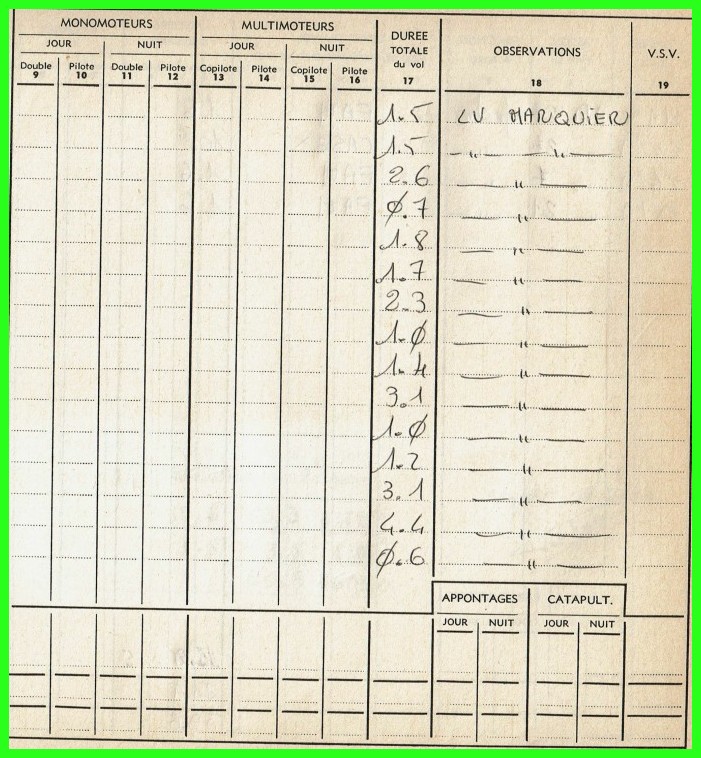 MONOMOTEURS MULTIMOTEURS DUREE TOTALE du vol OBSERVATIONS V.S.V.
JOUR NUIT JOUR NUIT
Double Pilote Double Pilote Copilote Pilote Copilote Pilote
9 10 11 12 13 14 15 16 17 18 19
1.5 LV MARQUIER
1.5 — " — " —
2.6 — " —
Ø.7 — " —
1.8 — " —
1.7 — " —
2.3 — " —
1.Ø — " —
1.4 — " —
3.1 — " —
1.Ø — " —
1.2 — " —
3.1 — " —
4.4 — " —
Ø.6 — " —
APPONTAGES CATAPULT.
JOUR NUIT JOUR NUIT